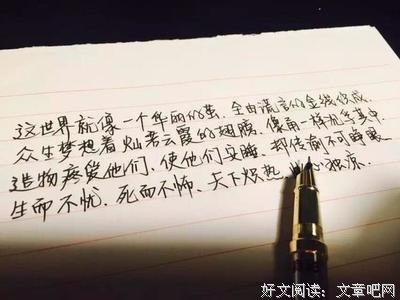 这世界就像一个华丽的茧，全由谎言的金线织成，
众生梦想着灿若云霞的翅膀，像角一样扎手其中
造物疼爱他们，使他们安睡，却传谕不可睁眼
生而不忧，死而不怖，天下炽热 心独凉.
好文阅读：文章吧网